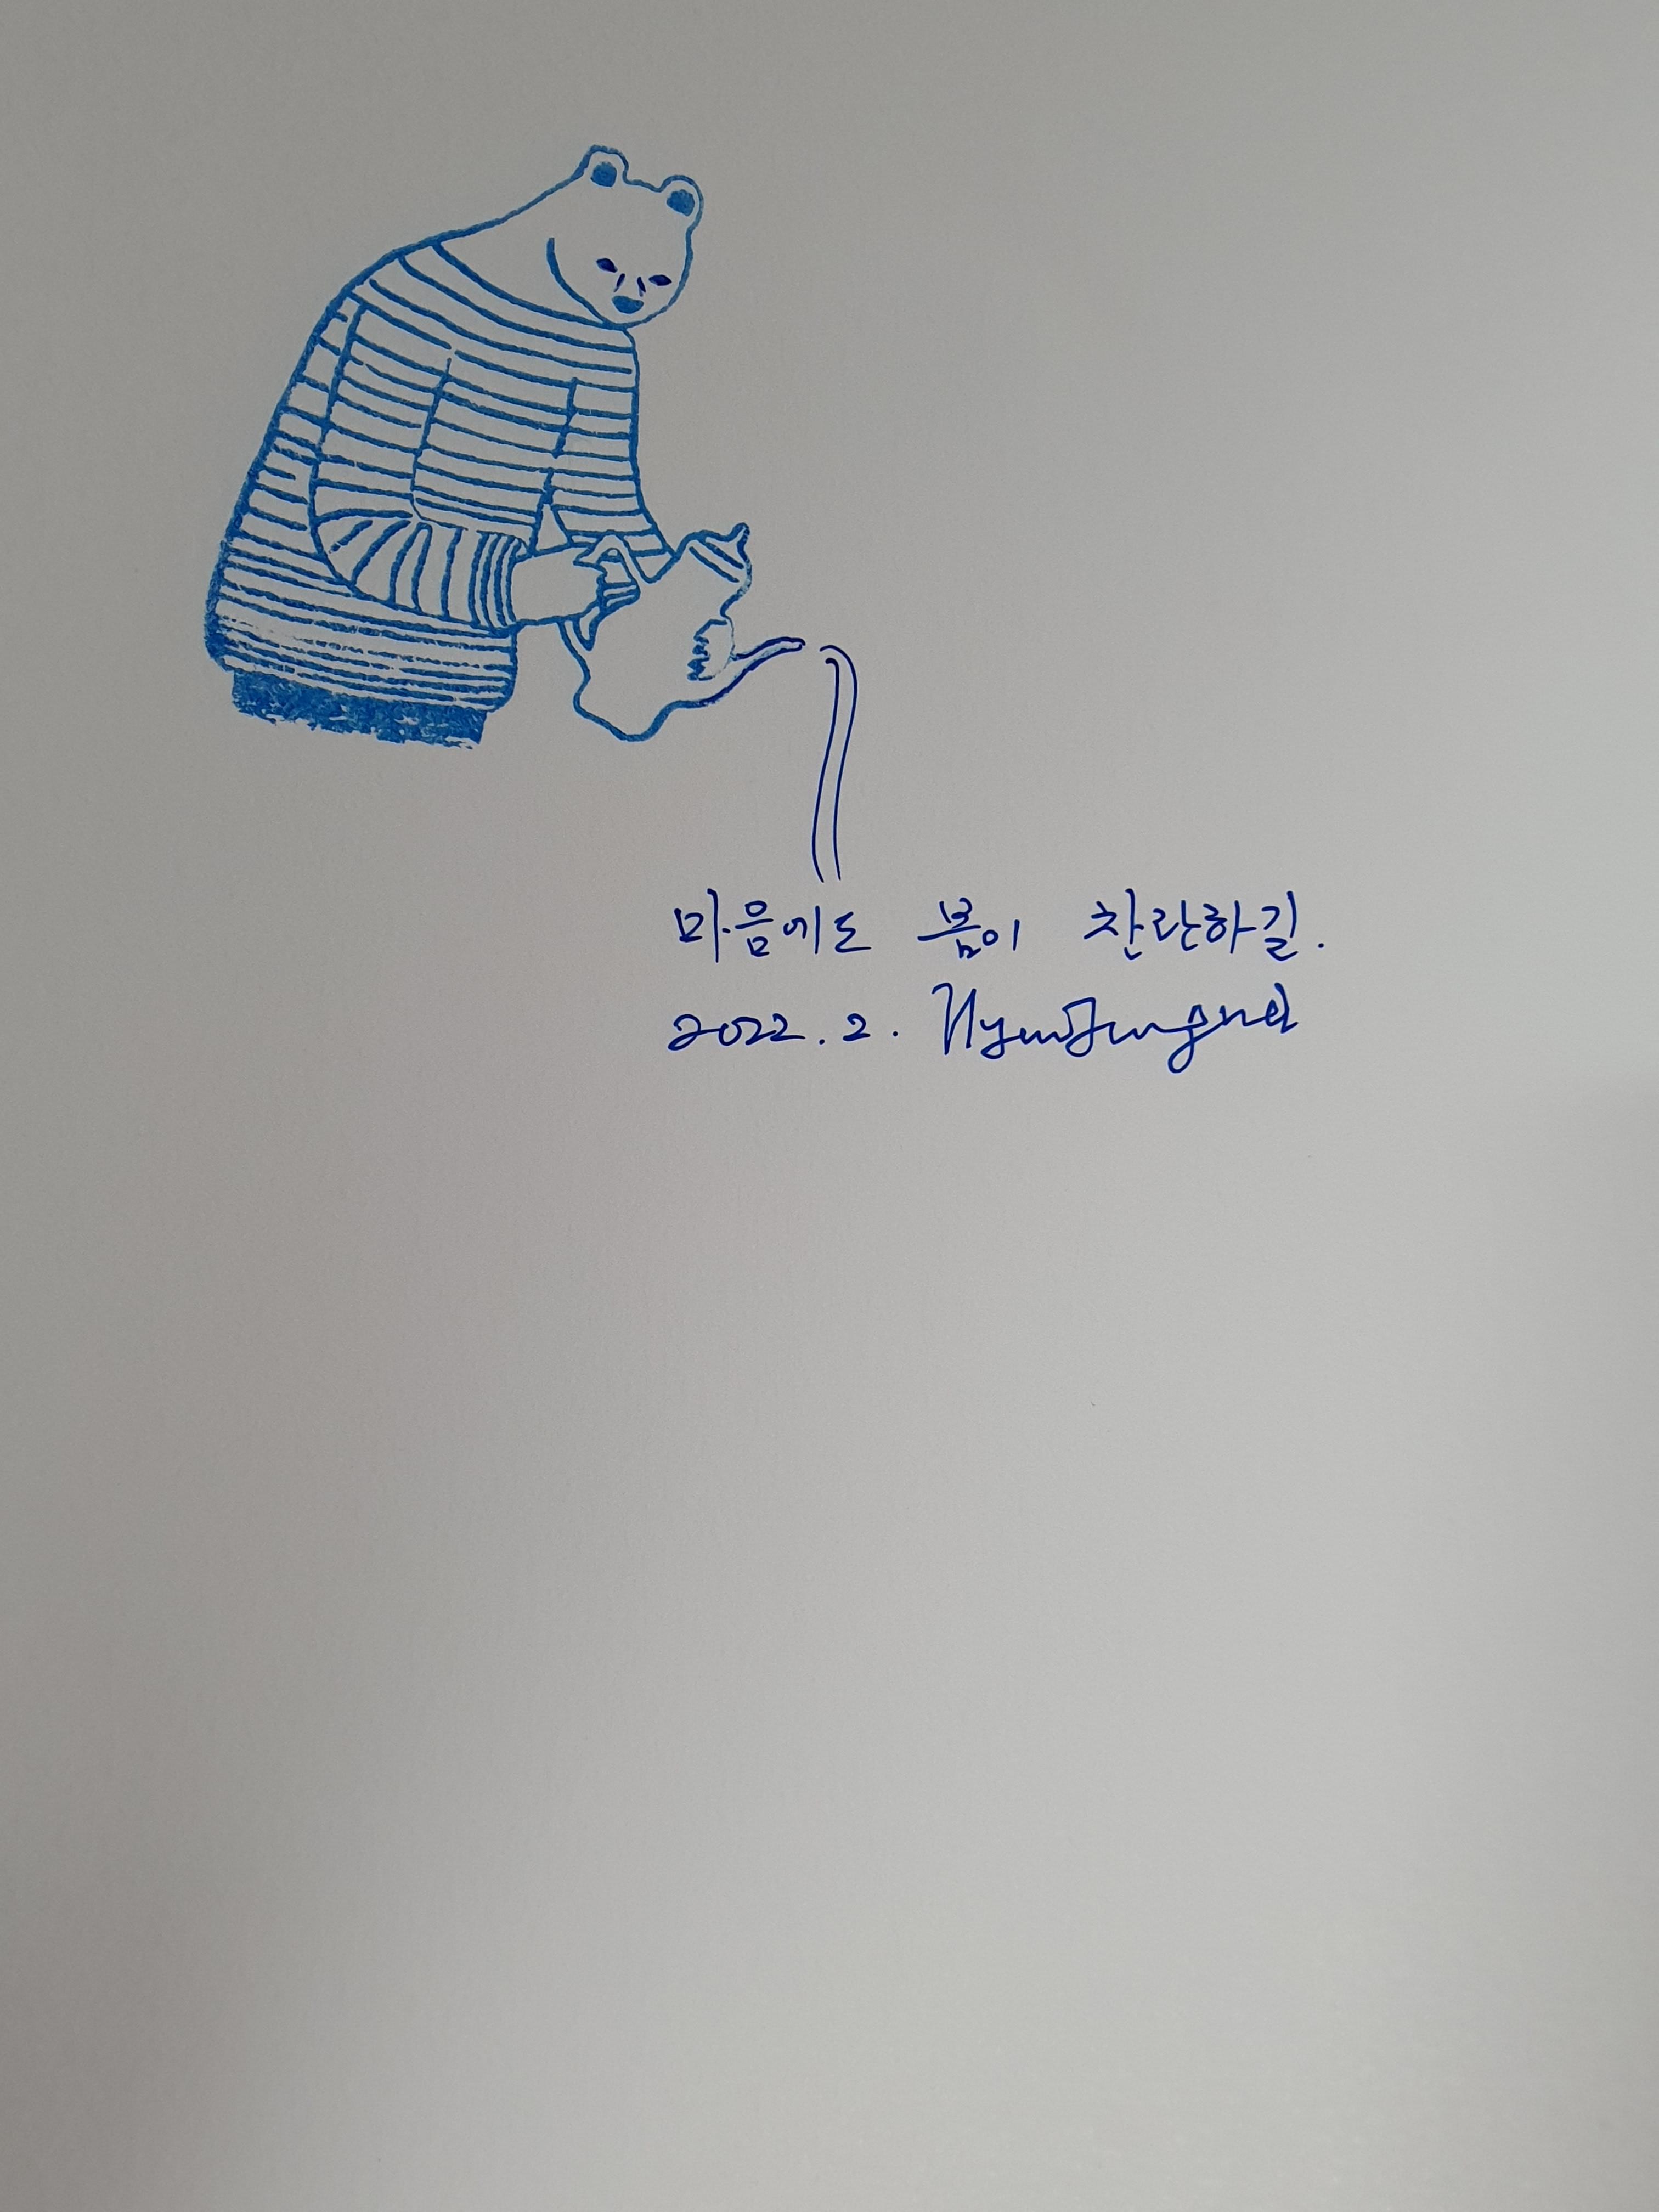 마음에도 봄이 찬란하길.
2022.2.